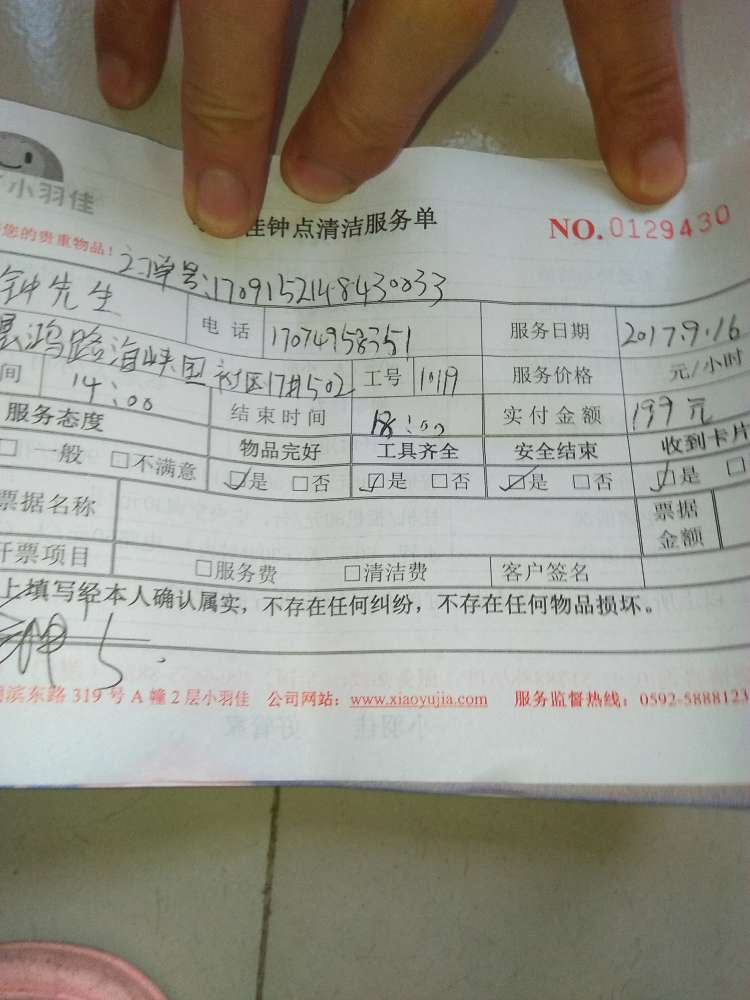 小羽佳
佳钟点清洁服务单
NO.0129430
您的贵重物品!
订单号:1709152148430033
钟先生 电话 17074958351 服务日期 2017.9.16
鸿路海峡国社区17#502 工号 1019 服务价格 元/小时
间 14:00 结束时间 18:00 实付金额 199元
服务态度 物品完好 工具齐全 安全结束 收到卡片
□一般 □不满意 ☑是 □否 ☑是 □否 ☑是 □否 ☑是
票据名称 票据金额
开票项目 □服务费 □清洁费 客户签名
上填写经本人确认属实，不存在任何纠纷，不存在任何物品损坏。
滨东路 319 号 A 幢 2 层小羽佳 公司网站：www.xiaoyujia.com 服务监督热线：0592-5888123